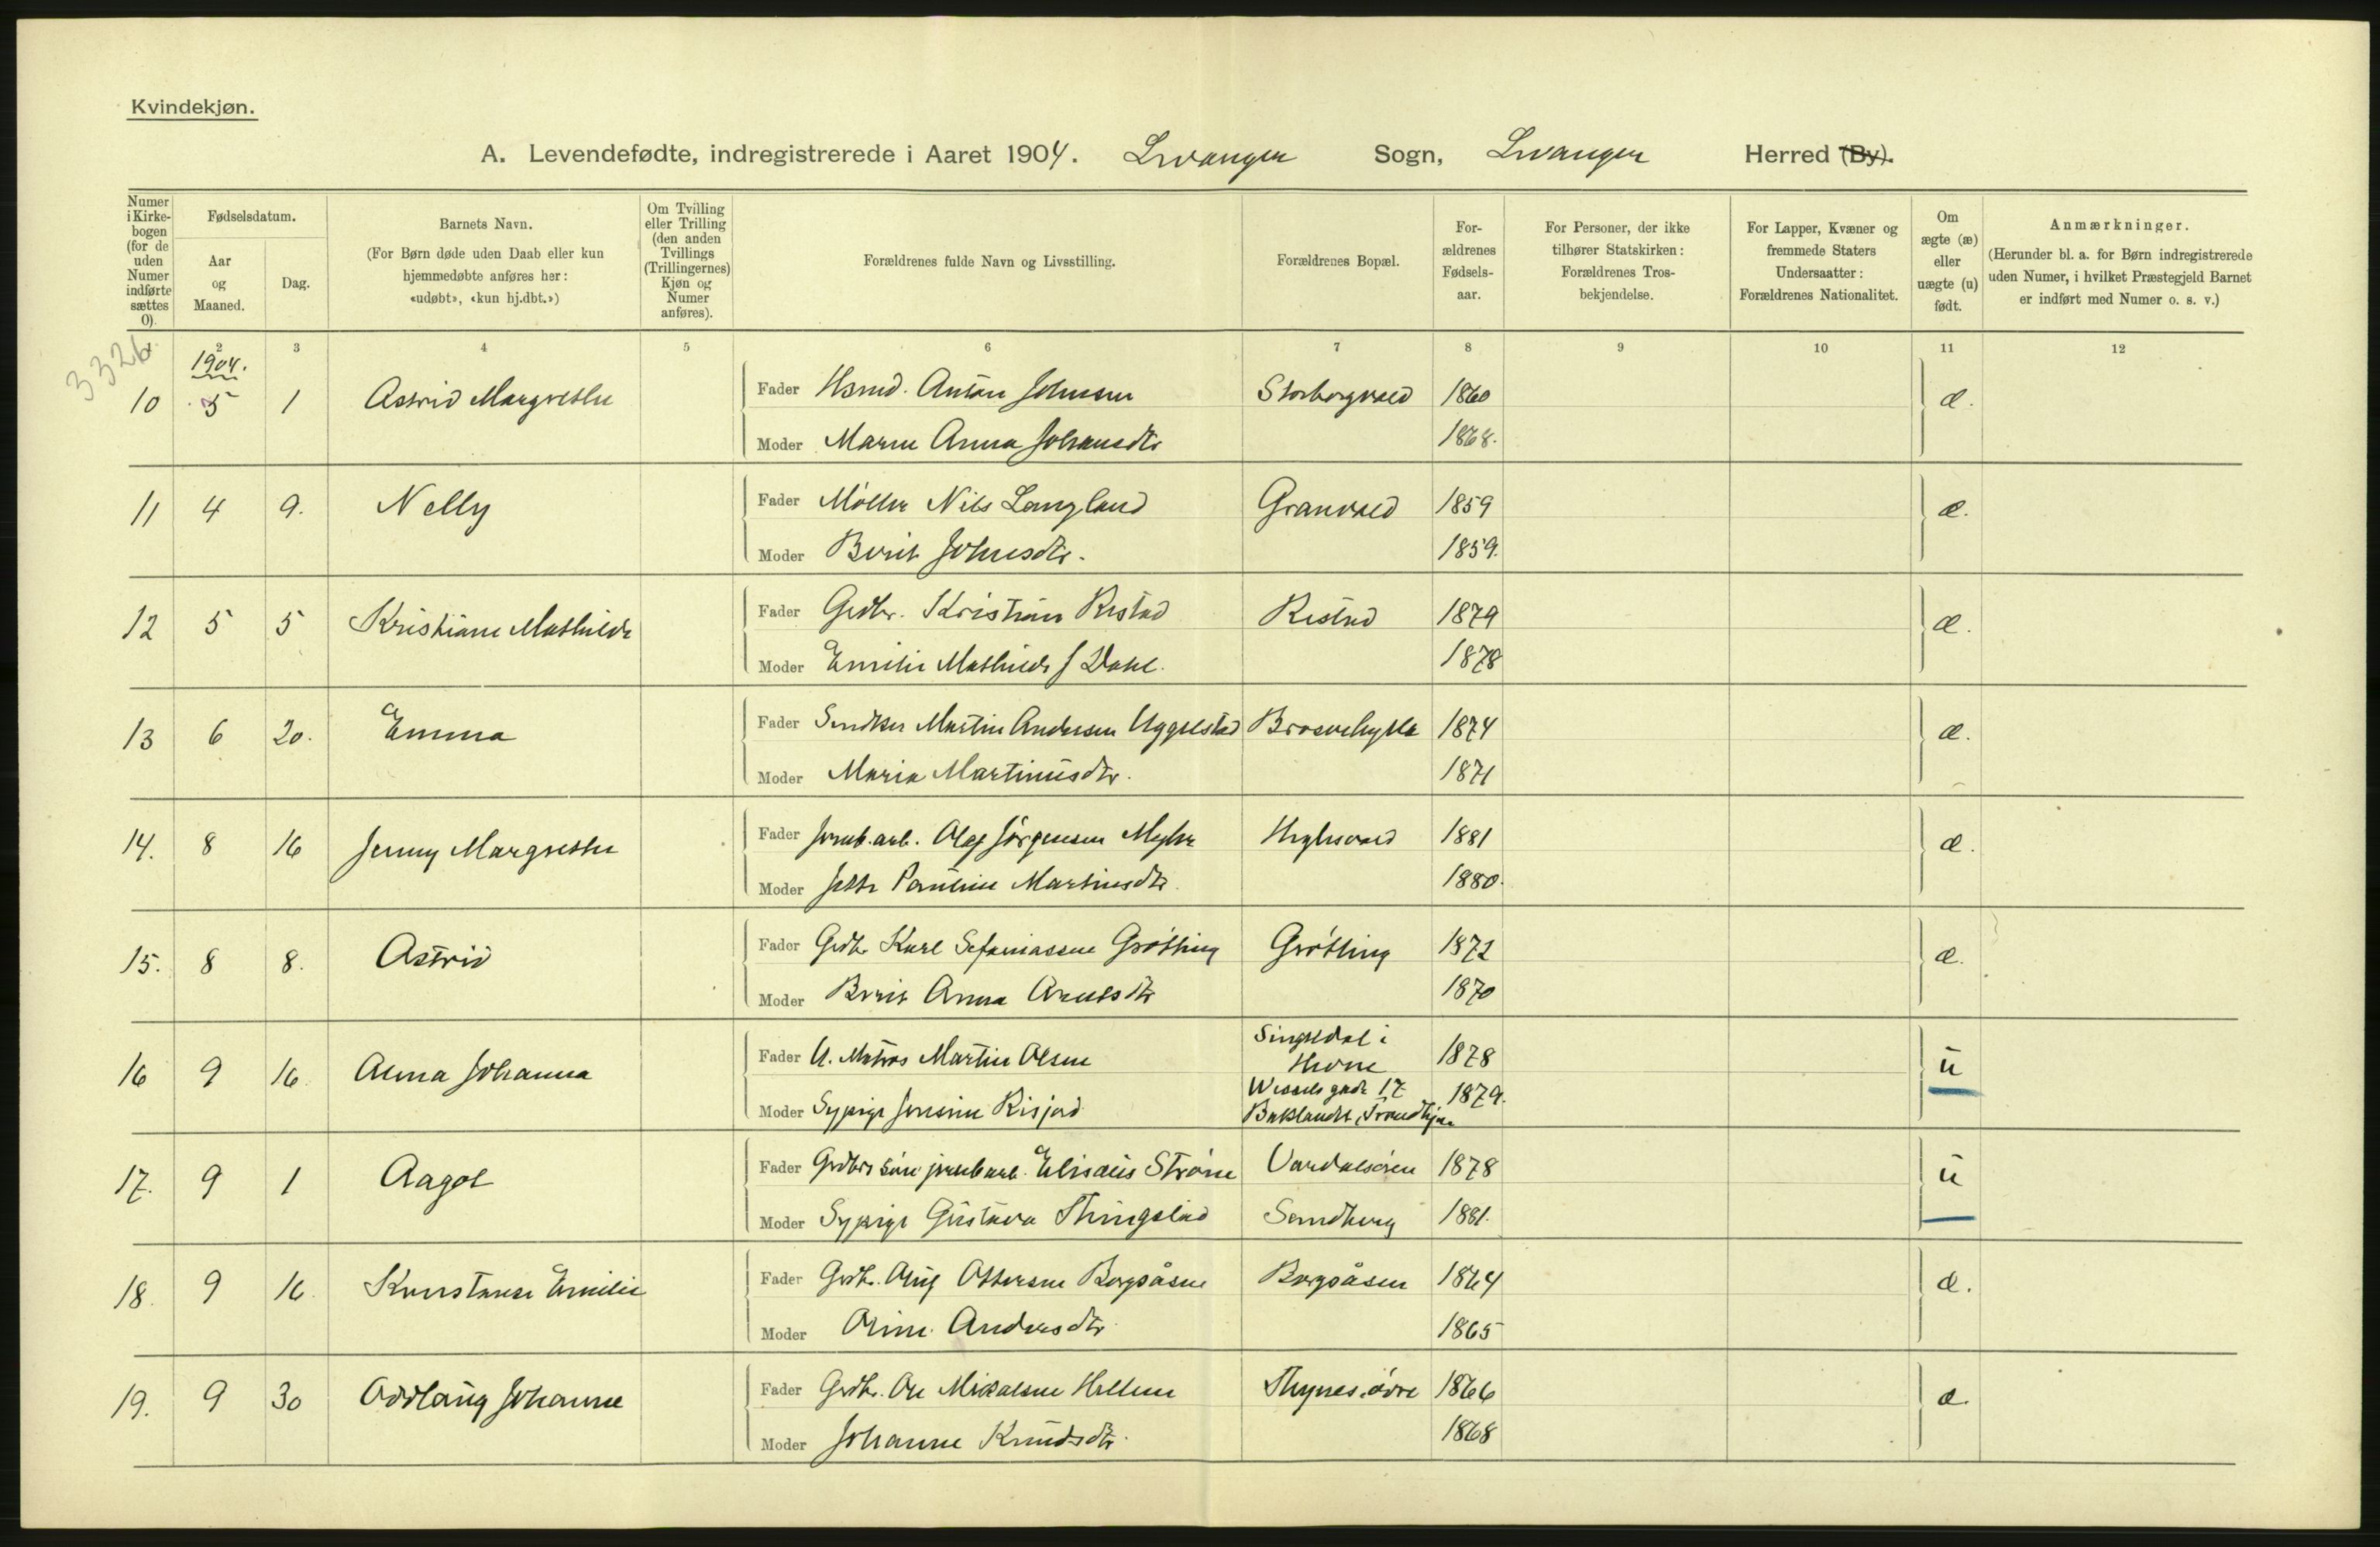 Kvindekjøn.
A. Levendefødte, indregistrerede i Aaret 1904. Levanger Sogn, Levanger Herred (By).
Numer i Kirke-bogen (for de uden Numer indførte sættes 0).
Fødselsdatum.
Aar og Maaned.
Dag.
Barnets Navn.
(For Børn døde uden Daab eller kun hjemmedøbte anføres her: «udøbt», «kun hj.dbt.»)
Om Tvilling eller Trilling (den anden Tvillings (Trillingernes) Kjøn og Numer anføres).
Forældrenes fulde Navn og Livsstilling.
Forældrenes Bopæl.
For-ældrenes Fødsels-aar.
For Personer, der ikke tilhører Statskirken: Forældrenes Tros-bekjendelse.
For Lapper, Kvæner og fremmede Staters Undersaatter: Forældrenes Nationalitet.
Om ægte (æ) eller uægte (u) født.
Anmærkninger.
(Herunder bl. a. for Børn indregistrerede uden Numer, i hvilket Præstegjeld Barnet er indført med Numer o. s. v.)
1 2 3 4 5 6 7 8 9 10 11 12
3326
1904.
10 5 1 Astrid Margrethe Fader Hsmd. Anton Johnsen Storborgvald 1860 æ.
Moder Maren Anna Johansdtr 1868.
11 4 9. Nelly Fader Møller Nils Langland Granvald 1859 æ.
Moder Berit Johnsdtr. 1859.
12 5 5 Kristiane Mathilde Fader Grdbr. Kristian Ristad Ristad 1879 æ.
Moder Emilie Mathilde J Dahl. 1878
13 6 20. Emma Fader Snedker Martin Andersen Uggelstad 1874 æ.
Moder Maria Martinusdtr. 1871
14. 8 16 Jenny Margrethe Fader Jernb.arb. Olaf Jørgensen 1881 æ.
Moder Jette Pauline Martinsdtr. 1880.
15. 8 8. Astrid Fader Grdbr Karl Sefaniassen Grøtting Grøtting 1872 æ.
Moder Berit Anna Arntsdtr 1870
16 9 16. Anna Johanna Fader U. Matros Martin Olsen Singsdal i Hevne 1878 u
Moder Sypige Jensine Risjord Wessels gade 17 Baklandet, Trondhjem 1879.
17. 9 1 Aagot Fader Grdbrs søn jernb arb. Elisæus Strøm Værdalsøren 1878 u
Moder Sypige Gustava Thingstad Sandberg 1881.
18. 9 16. Konstanse Emilie Fader Grdbr. Oluf Ottersen Borgsåsen Borgsåsen 1864 æ.
Moder Oline Andersdtr. 1865
19. 9 30 Oddlaug Johanne Fader Grdbr. Ole Mikalsen Hellem Thynes øvre 1866 æ.
Moder Johanne Knudsdtr. 1868